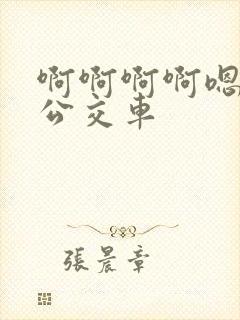 啊啊啊啊嗯
公交車
張晨章